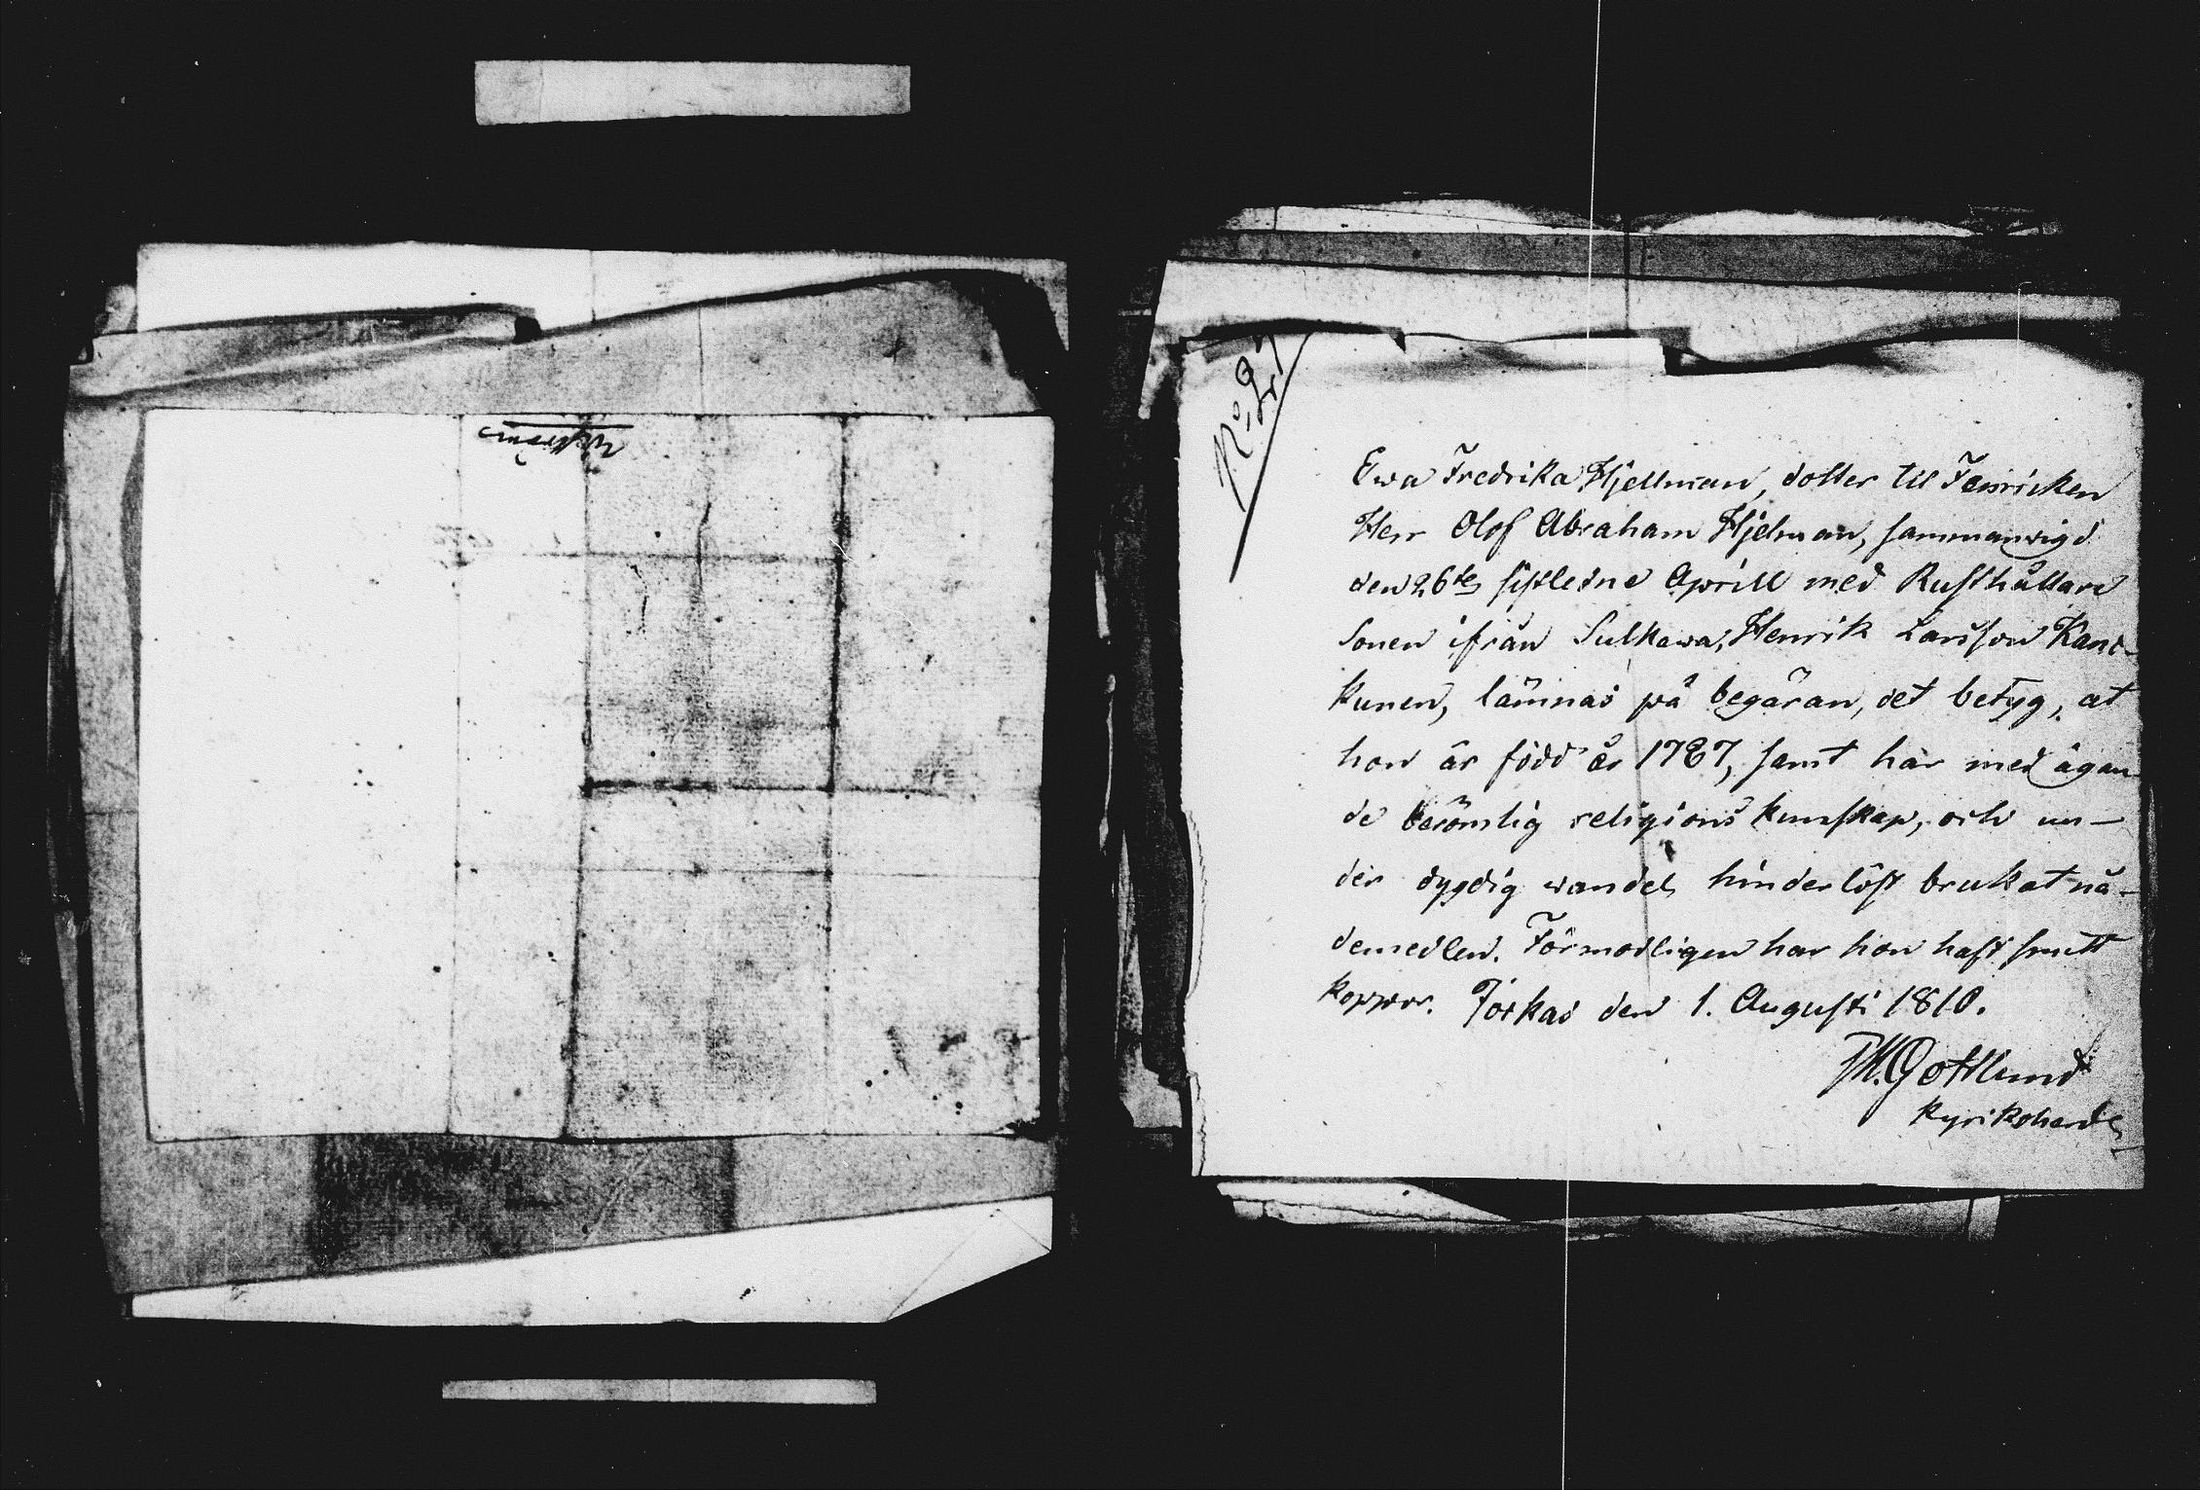 Ewa Fredrika Hjellman, dotter til Fenricken
Herr Olof Abraham Hjelman, sammanwigd
den 26te sistledne Aprill med Rusthållare
Sonen ifrån Sulkawa, Henrik Larsson Kans-
kunen, lämnas på begäran, det betyg, at
hon är född år 1787, samt här med ägan
de berömlig religions kunskap, och un-
der dygdig wandel hinderlöst brukat nå-
demedlen. Förmodligen har hon haft smitt
koppor. Jockas den 1. Augusti 1810.
M. Gottlund
Kyrikoherde